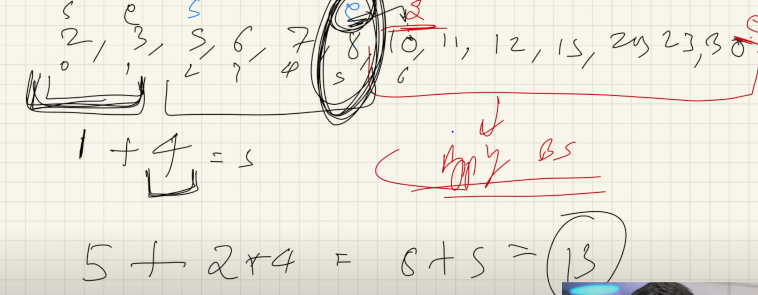 s e s e s e
2, 3, 5, 6, 7, 8, 10, 11, 12, 15, 20, 23, 30
0 1 2 3 4 5 6
1 + 4 = 5
BS
5 + 2*4 = 8+5 = 13